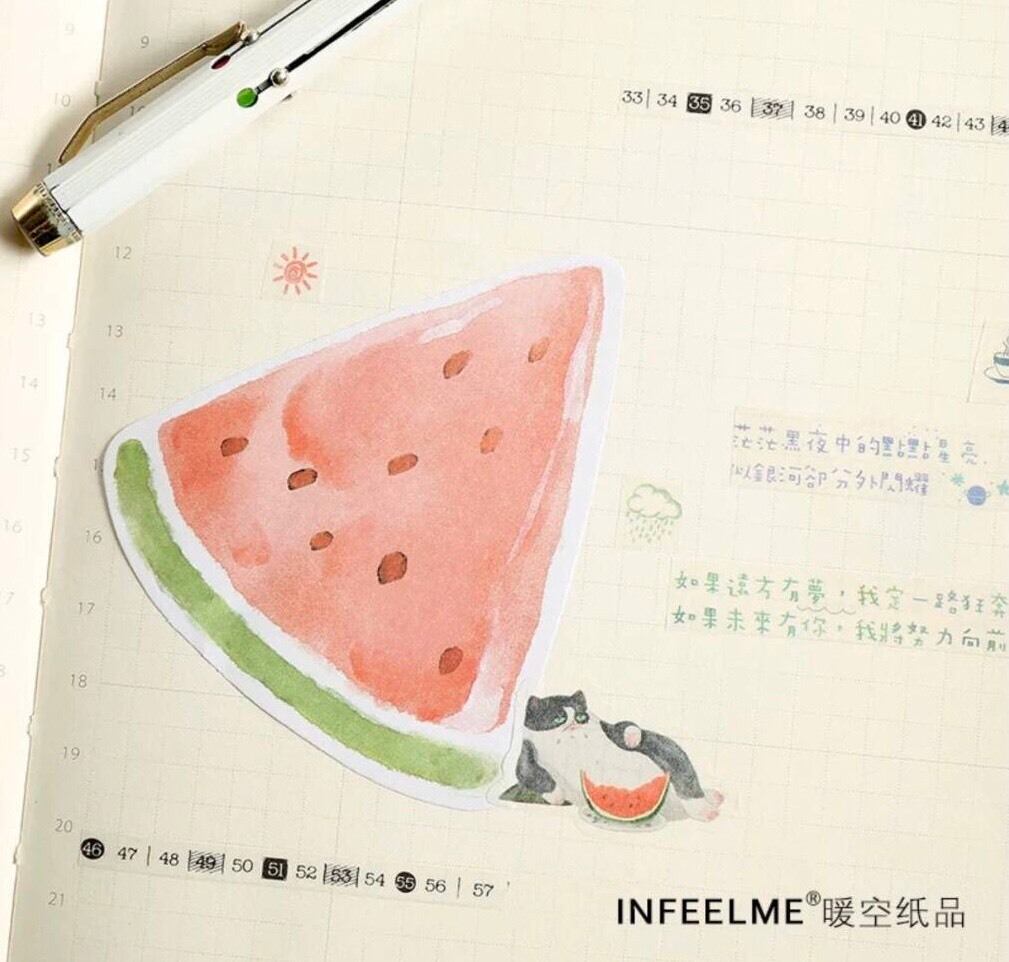 9
9
10
10
11
12
13
13
14
14
15
15
16
16
17
18
19
20
21
33 | 34 35 36 | 37 | 38 | 39 | 40 41 42 | 43
茫茫黑夜中的點點星亮,
似銀河卻分外閃耀
如果遠方有夢,我定一路狂奔
如果未來有你,我將努力向前
46 47 | 48 49 50 51 52 53 54 55 56 | 57
INFEELME®暖空纸品